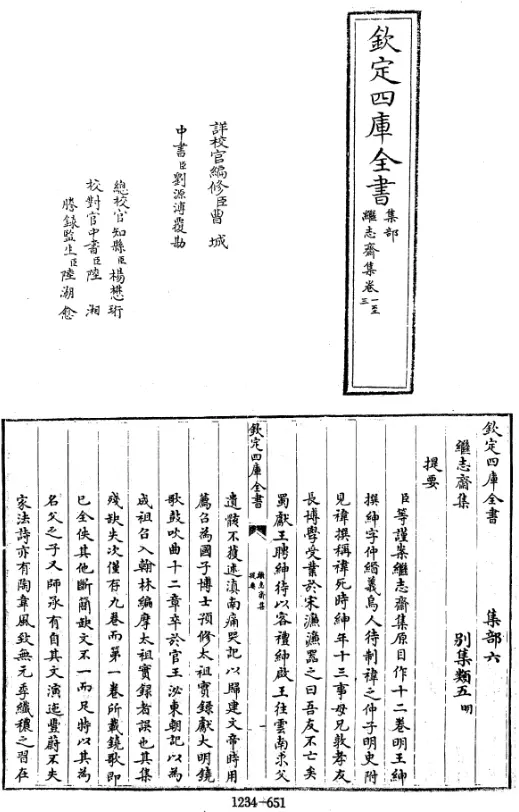 欽定四庫全書
集部
繼志齋集卷一至三
詳校官編修臣曹城
中書臣劉源溥覆勘
總校官知縣臣楊懋珩
校對官中書臣陸湘
謄錄監生臣陸湖
欽定四庫全書
集部六
繼志齋集
別集類五明
提要
臣等謹案繼志齋集原目作十二卷明王紳
撰紳字仲縉義烏人待制褘之仲子明史附
見褘傳稱褘死時紳年十三事母兄敦孝友
長博學受業於宋濂濂器之曰吾友不亡矣
蜀獻王聘紳待以客禮紳啟王往雲南求父
欽定四庫全書
繼志齋集
提要
一
遺骸不獲述滇南痛哭記以歸建文帝時用
薦召為國子博士預修太祖實錄獻大明鐃
歌鼓吹曲十二章卒於官王泌東朝記以為
成祖召入翰林編摩太祖實錄者誤也其集
殘缺失次僅存九卷而第一卷所載鐃歌即
已全佚其他斷簡缺文不一而足特以其為
名父之子又師承有自其文演迤豐蔚不失
家法詩亦有陶韋風致無元季纖穠之習在
1234-651